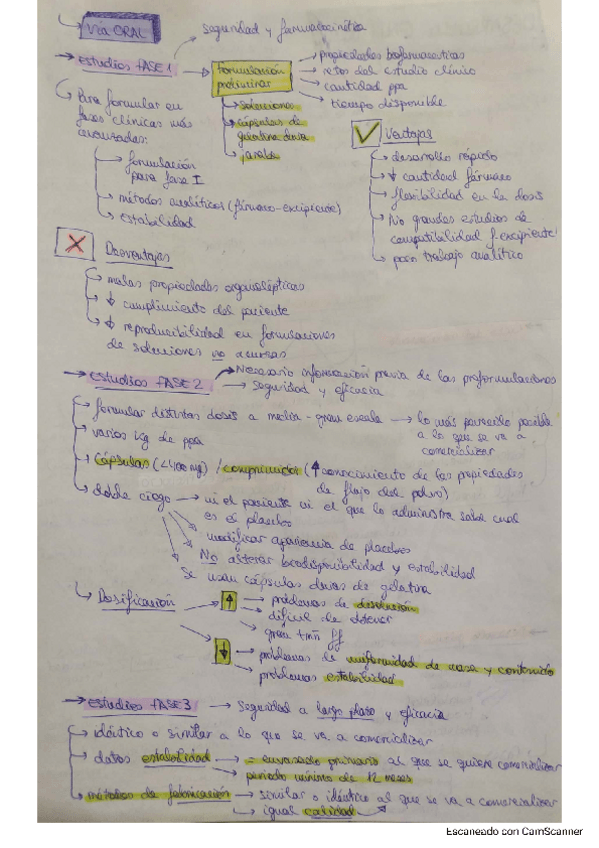 Vía ORAL
Estudios FASE 1
Seguridad y farmacocinética
formulación
preliminar
propiedades biofarmaceuticas
retos del estudio clínico
cantidad ppa
tiempo disponible
soluciones
cápsulas de
gelatina dura
Para formular en
fases clínicas más
avanzadas:
formulación
para fase I
métodos analíticos (fármaco-excipiente)
estabilidad
Ventajas
desarrollo rápido
↓ cantidad fármaco
flexibilidad en la dosis
No grandes estudios de
compatibilidad f.excipiente
poco trabajo analítico
Desventajas
malas propiedades organolépticas
↓ cumplimiento del paciente
↓ reproducibilidad en formulaciones
de soluciones no acuosas
Estudios FASE 2
Necesario información previa de las preformulaciones
Seguridad y eficacia
formular distintas dosis a media-gran escala → lo más parecido posible
a lo que se va a
comercializar
varios Kg de ppa
Cápsulas (<400 mg) / comprimidos (↑ conocimiento de las propiedades
de flujo del polvo)
doble ciego → ni el paciente ni el que lo administra sabe cual
es el placebo
modificar apariencia de placebos
No alterar biodisponibilidad y estabilidad
Se usan cápsulas duras de gelatina
Dosificación
↑ problemas de disolución
difícil de obtener
gran tmñ ff
↓ problemas de uniformidad de masa y contenido
problemas estabilidad
Estudios FASE 3 → Seguridad a largo plazo y eficacia
idéntico o similar a lo que se va a comercializar
datos estabilidad → = envasado primario al que se quiere comercializar
periodo mínimo de 12 meses
métodos de fabricación → similar o idéntico al que se va a comercializar
igual calidad
Escaneado con CamScanner